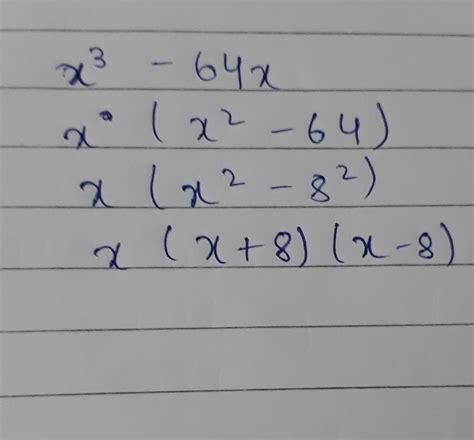 x³ - 64x
x (x² - 64)
x (x² - 8²)
x (x+8) (x-8)